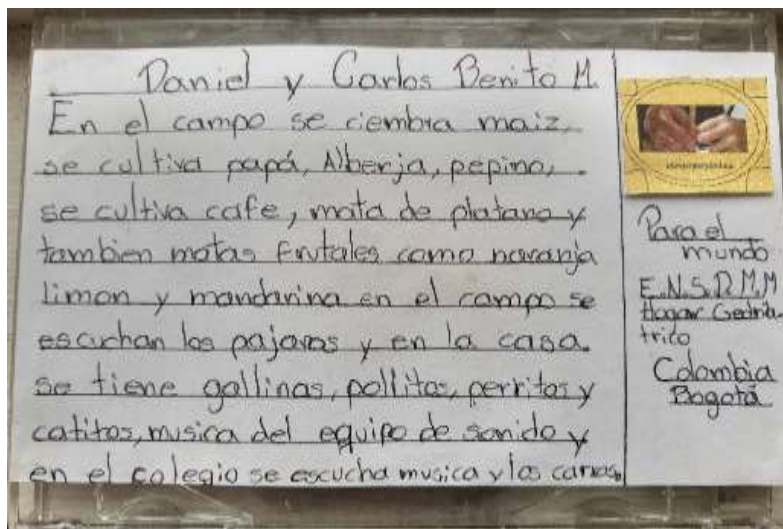 Daniel y Carlos Benito M.
En el campo se ciembra maiz,
se cultiva papá, Alberja, pepino,
se cultiva cafe, mata de platano y
tambien matas frutales como naranja
limon y mandarina en el campo se
escuchan los pajaros y en la casa
se tiene gallinas, pollitos, perritos y
catitos, musica del equipo de sonido y
en el colegio se escucha musica y los carros
Para el
mundo
E.N.S.D.M.M
Hogar Geriá
trico
Colombia
Bogotá